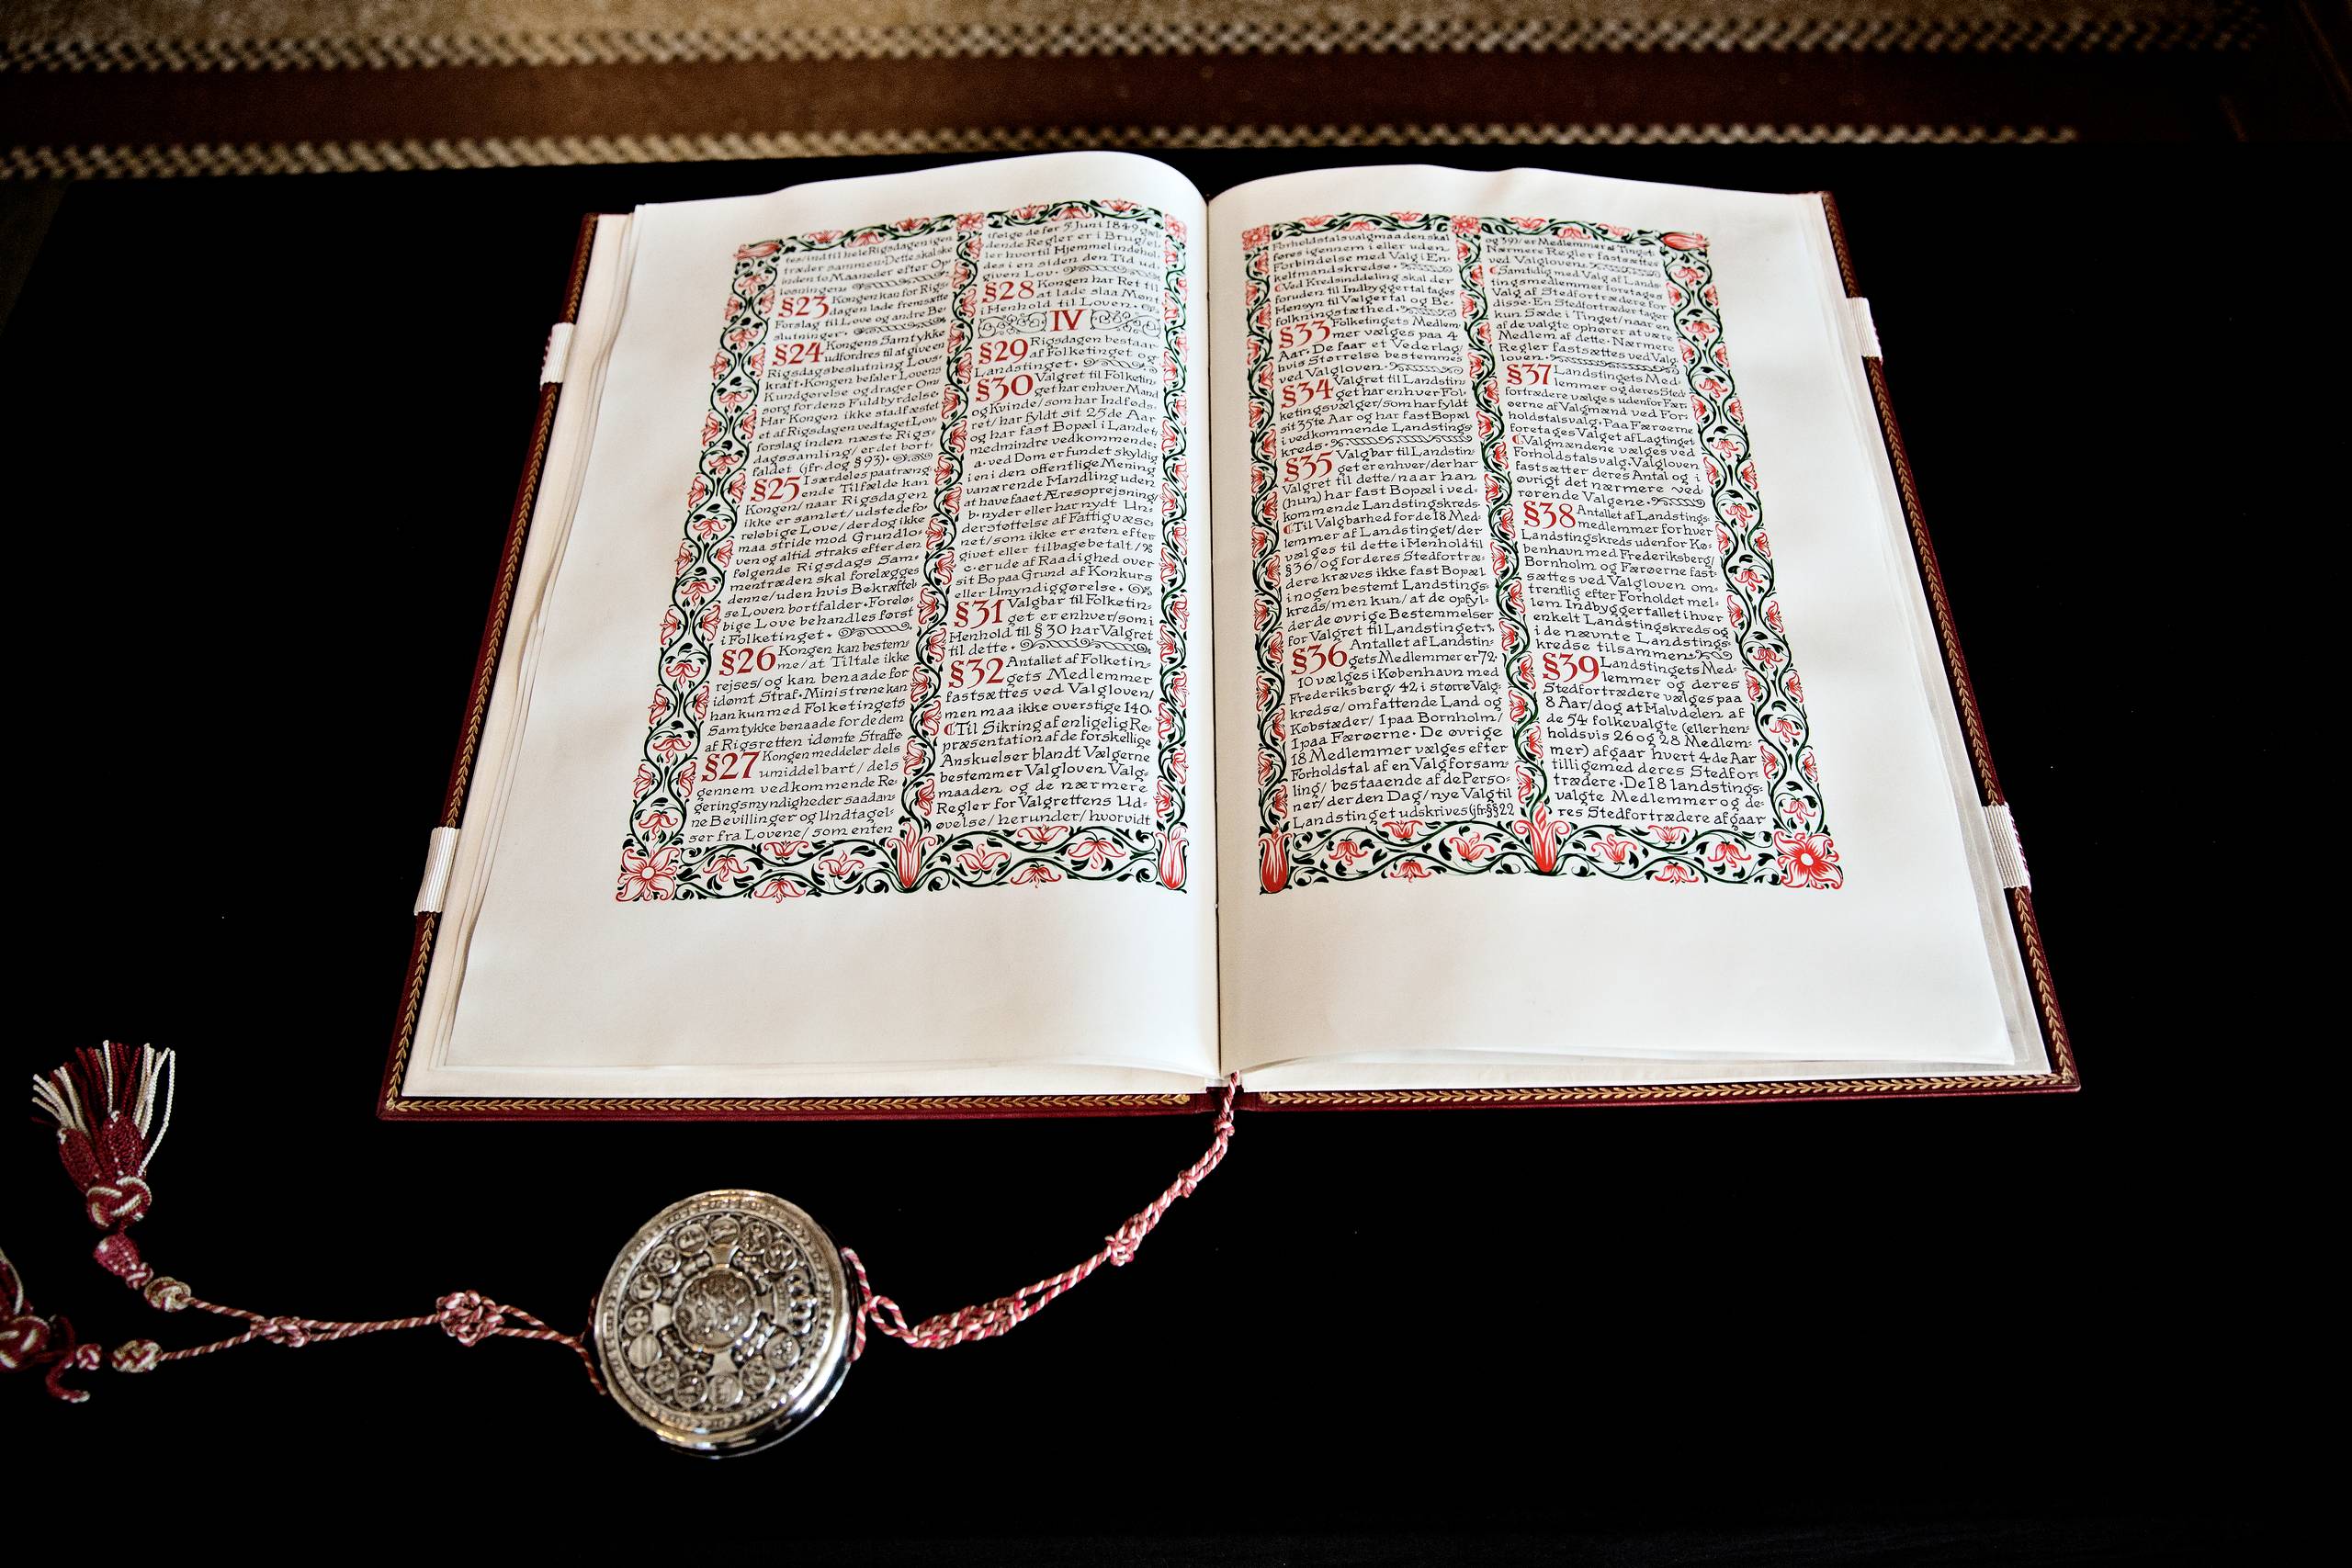 tes/indtil hele Rigsdagen igen
træder sammen·Dette skal ske
inden to Maaneder efter Op-
løsningen·
§23 Kongen kan for Rigs-
dagen lade fremsætte
Forslag til Love og andre Be-
slutninger·
§24 Kongens Samtykke
udfordres til at give en
Rigsdagsbeslutning Lovs-
kraft·Kongen befaler Lovens
Kundgørelse og drager Om-
sorg for dens Fuldbyrdelse·
Har Kongen ikke stadfæstet
et af Rigsdagen vedtaget Lov-
forslag inden næste Rigs-
dagssamling/er det bort-
faldet (jfr·dog §93)·
§25 I særdeles paatræng-
ende Tilfælde kan
Kongen/naar Rigsdagen
ikke er samlet/udstede fo-
reløbige Love/der dog ikke
maa stride mod Grundlo-
ven og altid straks efter den
følgende Rigsdags Sam-
mentræden skal forelægges
denne/uden hvis Bekræftel-
se Loven bortfalder·Forelø-
bige Love behandles først
i Folketinget·
§26 Kongen kan bestem-
me/at Tiltale ikke
rejses/og kan benaade for
idømt Straf·Ministrene kan
han kun med Folketingets
Samtykke benaade for de dem
af Rigsretten idømte Straffe
§27 Kongen meddeler dels
umiddelbart/dels
gennem vedkommende Re-
geringsmyndigheder saadan-
ne Bevillinger og Undtagel-
ser fra Lovene/som enten
ifølge de før 5 Juni 1849 gæl-
dende Regler er i Brug/el-
ler hvortil Hjemmel indehol-
des i en siden den Tid ud-
given Lov·
§28 Kongen har Ret til
at lade slaa Mønt
i Henhold til Loven·
IV
§29 Rigsdagen bestaar
af Folketinget og
Landstinget·
§30 Valgret til Folketin-
get har enhver Mand
og Kvinde/som har Indføds-
ret/har fyldt sit 25de Aar
og har fast Bopæl i Landet/
medmindre vedkommende:
a·ved Dom er fundet skyldig
i en i den offentlige Mening
vanærende Handling uden
at have faaet Æresoprejsning/
b·nyder eller har nydt Un-
derstøttelse af Fattigvæse-
net/som ikke er enten efter-
givet eller tilbagebetalt/%
c·er ude af Raadighed over
sit Bo paa Grund af Konkurs
eller Umyndiggørelse·
§31 Valgbar til Folketin-
get er enhver/som i
Henhold til §30 har Valgret
til dette·
§32 Antallet af Folketin-
gets Medlemmer
fastsættes ved Valgloven/
men maa ikke overstige 140·
¶Til Sikring af en ligelig Re-
præsentation af de forskellige
Anskuelser blandt Vælgerne
bestemmer Valgloven Valg-
maaden og de nærmere
Regler for Valgrettens Ud-
øvelse/herunder/hvorvidt
Forholdstalsvalgmaaden skal
føres igennem i eller uden
Forbindelse med Valg i En-
keltmandskredse·
¶Ved Kredsinddeling skal der
foruden til Indbyggertal tages
Hensyn til Vælgertal og Be-
folkningstæthed·
§33 Folketingets Medlem-
mer vælges paa 4
Aar·De faar et Vederlag/
hvis Størrelse bestemmes
ved Valgloven·
§34 Valgret til Landstin-
get har enhver Fol-
ketingsvælger/som har fyldt
sit 35te Aar og har fast Bopæl
i vedkommende Landstings-
kreds·
§35 Valgbar til Landstin-
get er enhver/der har
Valgret til dette/naar han
(hun) har fast Bopæl i ved-
kommende Landstingskreds·
¶Til Valgbarhed for de 18 Med-
lemmer af Landstinget/der
vælges til dette i Henhold til
§36/og for deres Stedfortræ-
dere kræves ikke fast Bopæl
i nogen bestemt Landstings-
kreds/men kun/at de opfyl-
der de øvrige Bestemmelser
for Valgret til Landstinget·
§36 Antallet af Landstin-
gets Medlemmer er 72·
10 vælges i København med
Frederiksberg/42 i større Valg-
kredse/omfattende Land og
Købstæder/1 paa Bornholm/
1 paa Færøerne·De øvrige
18 Medlemmer vælges efter
Forholdstal af en Valgforsam-
ling/bestaaende af de Perso-
ner/der den Dag/nye Valg til
Landstinget udskrives (jfr·§§22
og 39)/er Medlemmer af Tinget·
Nærmere Regler fastsættes
ved Valgloven·
¶Samtidig med Valg af Lands-
tingsmedlemmer foretages
Valg af Stedfortrædere for
disse·En Stedfortræder tager
kun Sæde i Tinget/naar en
af de valgte ophører at være
Medlem af dette·Nærmere
Regler fastsættes ved Valg-
loven·
§37 Landstingets Med-
lemmer og deres Sted-
fortrædere vælges udenfor Fær-
øerne af Valgmænd ved For-
holdstalsvalg·Paa Færøerne
foretages Valget af Lagtinget
¶Valgmændene vælges ved
Forholdstalsvalg·Valgloven
fastsætter deres Antal og i
øvrigt det nærmere ved-
rørende Valgene·
§38 Antallet af Landstings-
medlemmer for hver
Landstingskreds udenfor Kø-
benhavn med Frederiksberg/
Bornholm og Færøerne fast-
sættes ved Valgloven om-
trentlig efter Forholdet mel-
lem Indbyggertallet i hver
enkelt Landstingskreds og
i de nævnte Landstings-
kredse tilsammen·
§39 Landstingets Med-
lemmer og deres
Stedfortrædere vælges paa
8 Aar/dog at Halvdelen af
de 54 folkevalgte (eller hen-
holdsvis 26 og 28 Medlem-
mer) afgaar hvert 4de Aar
tilligemed deres Stedfor-
trædere·De 18 landstings-
valgte Medlemmer og de-
res Stedfortrædere afgaar